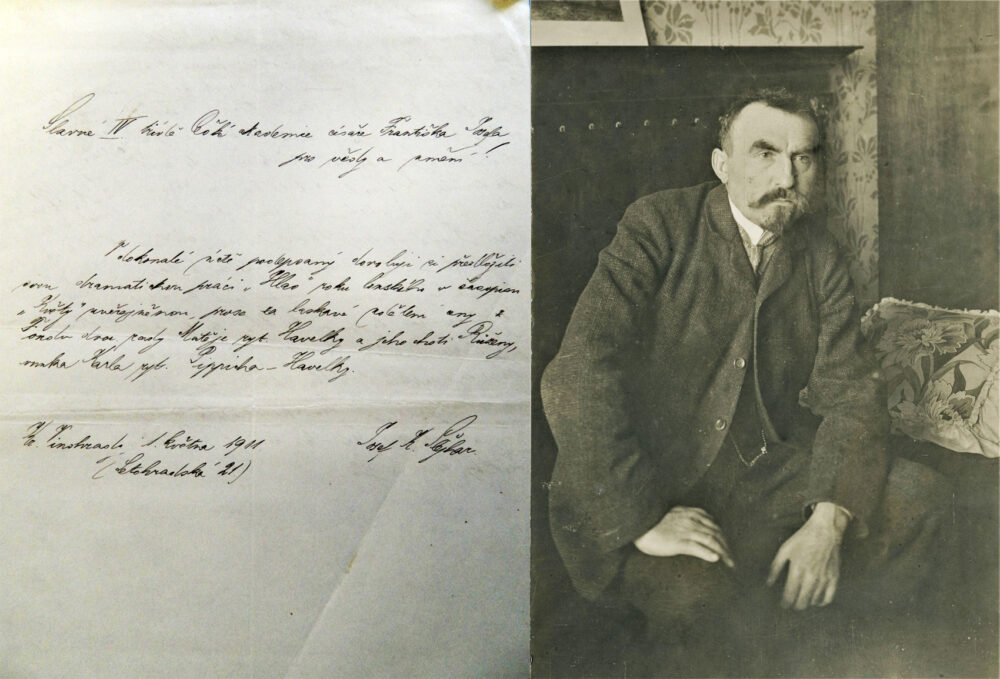 Slavné IV třídě České Akademie císaře Františka Josefa
pro vědy a umění!
V dokonalé úctě podepsaný dovoluji si předložiti
svou dramatickou práci „ roku loňského v časopisu
„Květy" uveřejněnou, prose za laskavé ceny z
fondu dvor. rady Matěje ryt. Havelky a jeho choti Růženy,
Karla ryt. Pippicha-Havelky.
Kr. Vinohrady 1. května 1911 Josef K. Šlejhar
(Letohradská 21)